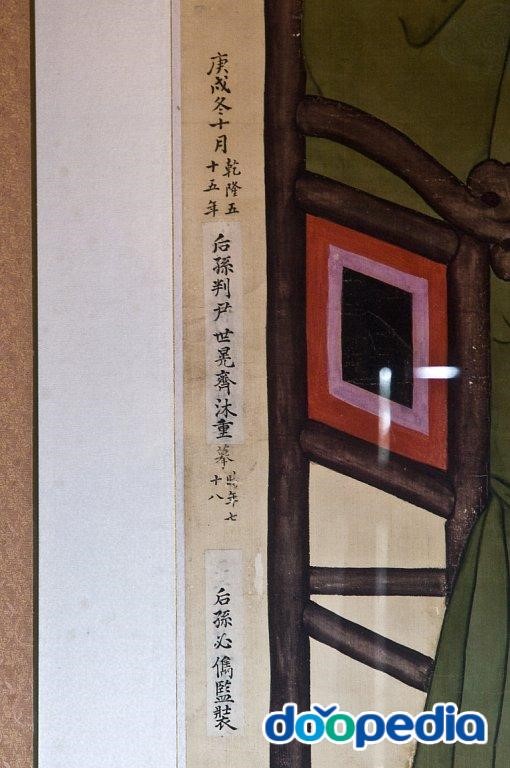 庚戌冬十月
乾隆五
十五年
后孫判尹世晃齊沐重摹
時年七
十八
后孫必儁監裝
doopedia